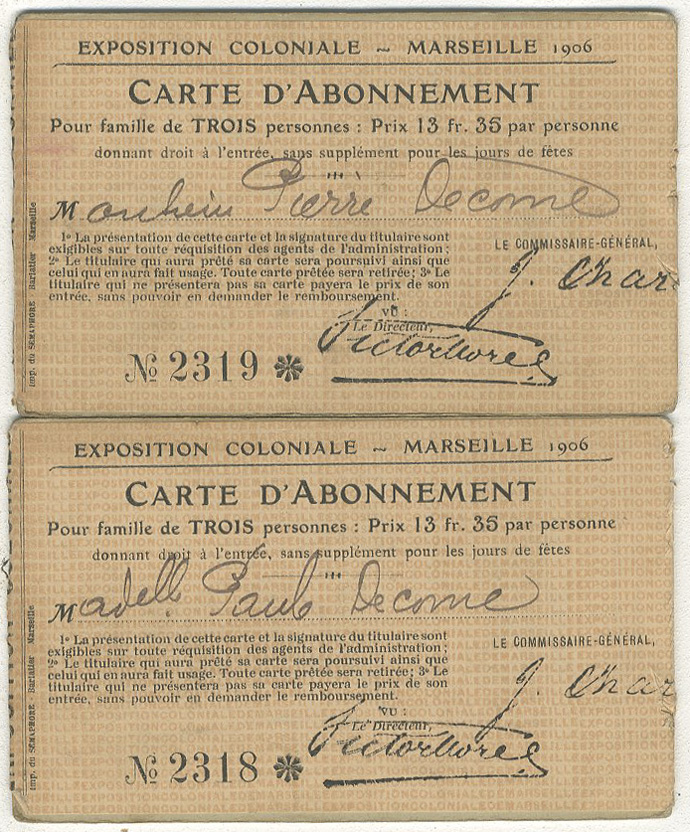 EXPOSITION COLONIALE ~ MARSEILLE 1906
CARTE D'ABONNEMENT
Pour famille de TROIS personnes : Prix 13 fr. 35 par personne
donnant droit à l'entrée, sans supplément pour les jours de fêtes
M Pierre Decome
1º La présentation de cette carte et la signature du titulaire sont
exigibles sur toute réquisition des agents de l'administration ;
2º Le titulaire qui aura prêté sa carte sera poursuivi ainsi que
celui qui en aura fait usage. Toute carte prêtée sera retirée ; 3º Le
titulaire qui ne présentera pas sa carte payera le prix de son
entrée, sans pouvoir en demander le remboursement.
LE COMMISSAIRE-GÉNÉRAL,
J. Char
VU :
Le Directeur,
Victor Morel
Nº 2319
Imp. du SÉMAPHORE Barlatier Marseille
EXPOSITION COLONIALE ~ MARSEILLE 1906
CARTE D'ABONNEMENT
Pour famille de TROIS personnes : Prix 13 fr. 35 par personne
donnant droit à l'entrée, sans supplément pour les jours de fêtes
Madelle Paule Decome
1º La présentation de cette carte et la signature du titulaire sont
exigibles sur toute réquisition des agents de l'administration ;
2º Le titulaire qui aura prêté sa carte sera poursuivi ainsi que
celui qui en aura fait usage. Toute carte prêtée sera retirée ; 3º Le
titulaire qui ne présentera pas sa carte payera le prix de son
entrée, sans pouvoir en demander le remboursement.
LE COMMISSAIRE-GÉNÉRAL,
J. Char
VU :
Le Directeur,
Victor Morel
Nº 2318
Imp. du SÉMAPHORE Barlatier Marseille